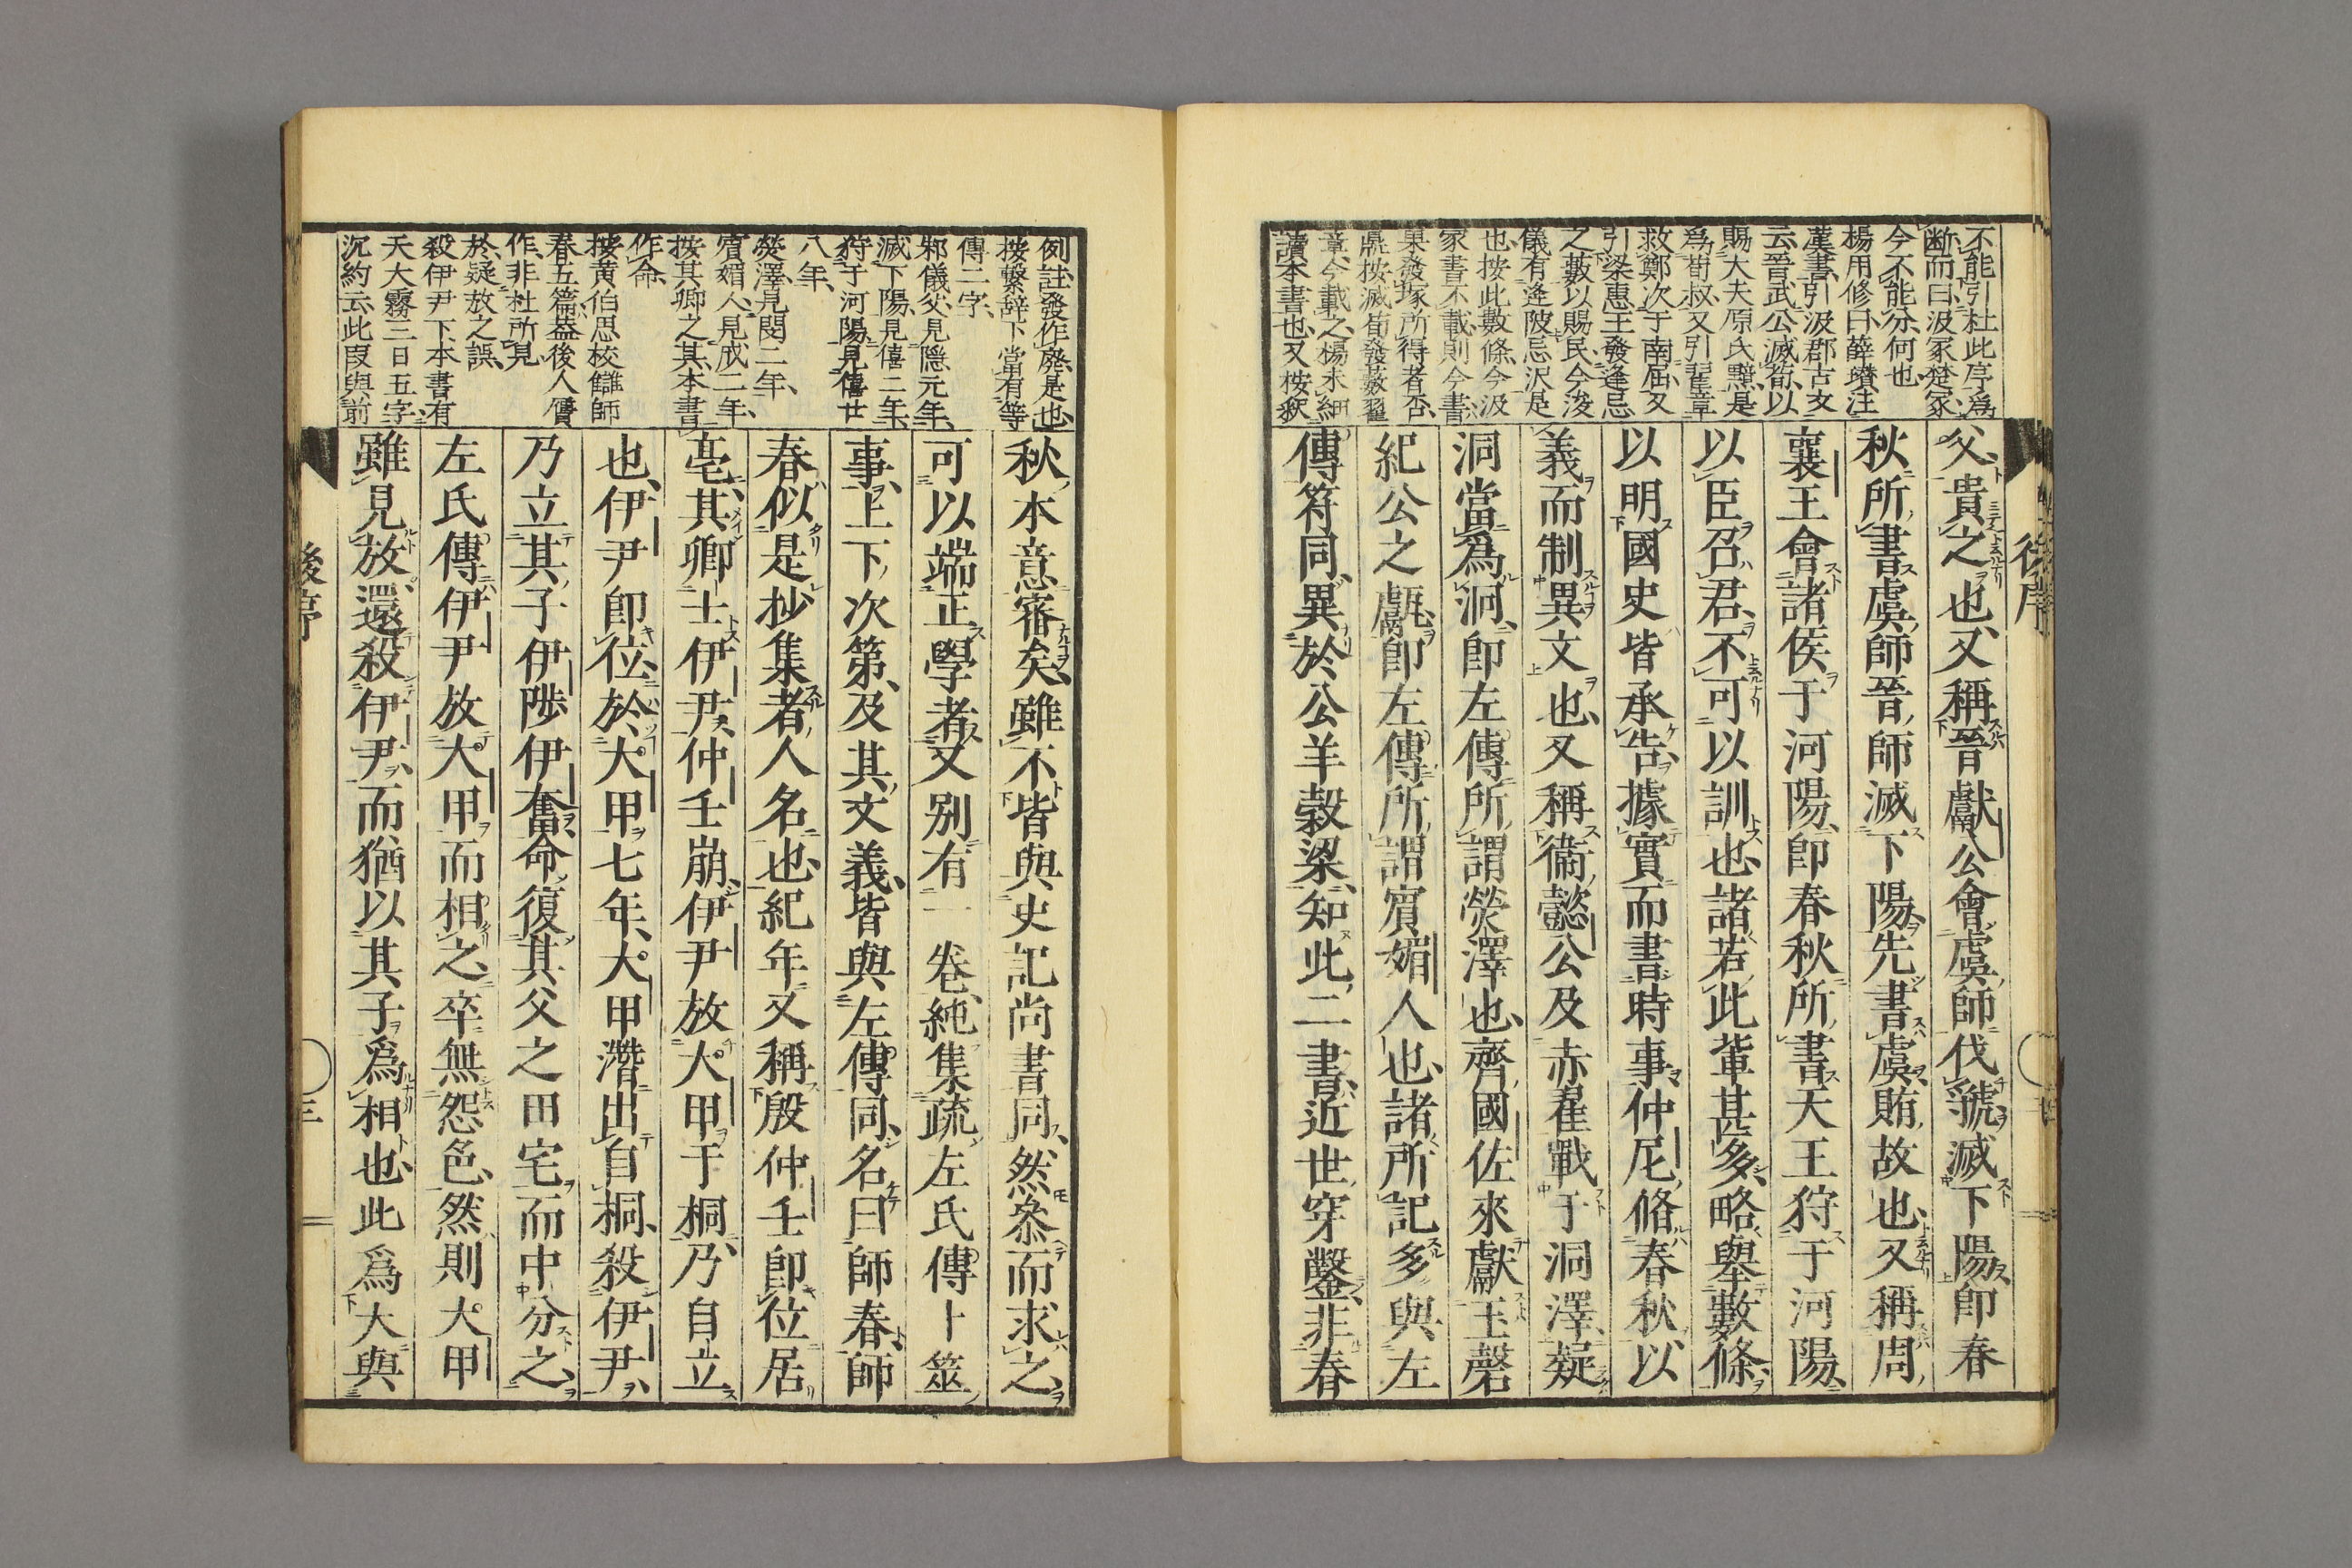 不能引杜此序爲
断而曰汲冢楚冢
今不能分何也
楊用修曰薛瓚注
漢書引汲郡古文
云晉武公滅荀以
賜大夫原氏黯是
爲荀叔又引翟章
救鄭次于南屈又
引梁惠王發逢忌
之藪以賜民今浚
儀有逢陂忌沢是
也按此數條今汲
冢書不載則今書
果發塚所得者否
鼎按滅荀發薮翟
章今載之楊未細
讀本書也又按繇
父貴之也又稱晉獻公會虞師伐虢滅下陽卽春
秋所書虞師晉師滅下陽先書虞賄故也又稱周
襄王會諸侯于河陽卽春秋所書天王狩于河陽
以臣召君不可以訓也諸若此軰甚多略舉數條
以明國史皆承告據實而書時事仲尼脩春秋以
義而制異文也又稱衞懿公及赤翟戰于洞澤疑
洞當爲泂卽左傳所謂熒澤也齊國佐來獻玉磬
紀公之甗卽左傳所謂賓媚人也諸所記多與左
傳符同異於公羊榖梁知此二書近世穿鑿非春
例註發作廢是也
按繋辞下當有等
傳二字
邾儀父見隱元年
滅下陽見僖二年
狩于河陽見僖廿
八年
熒澤見閔二年
賓媚人見成二年
按其卿之其本書
作命
按黄伯思校讎師
春五篇葢後人贋
作非杜所見
於疑放之誤
殺伊尹下本書有
天大霧三日五字
沉約云此叚與前
秋本意審矣雖不皆與史記尚書同然叅而求之
可以端正學者又别有一卷純集疏左氏傳卜筮
事上下次第及其文義皆與左傳同名曰師春師
春似是抄集者人名也紀年又稱殷仲壬卽位居
亳其卿士伊尹仲壬崩伊尹放大甲于桐乃自立
也伊尹卽位於大甲七年大甲潛出自桐殺伊尹
乃立其子伊陟伊奮命復其父之田宅而中分之
左氏傳伊尹放大甲而相之卒無怨色然則大甲
雖見放還殺伊尹而猶以其子爲相也此爲大與
後序
三